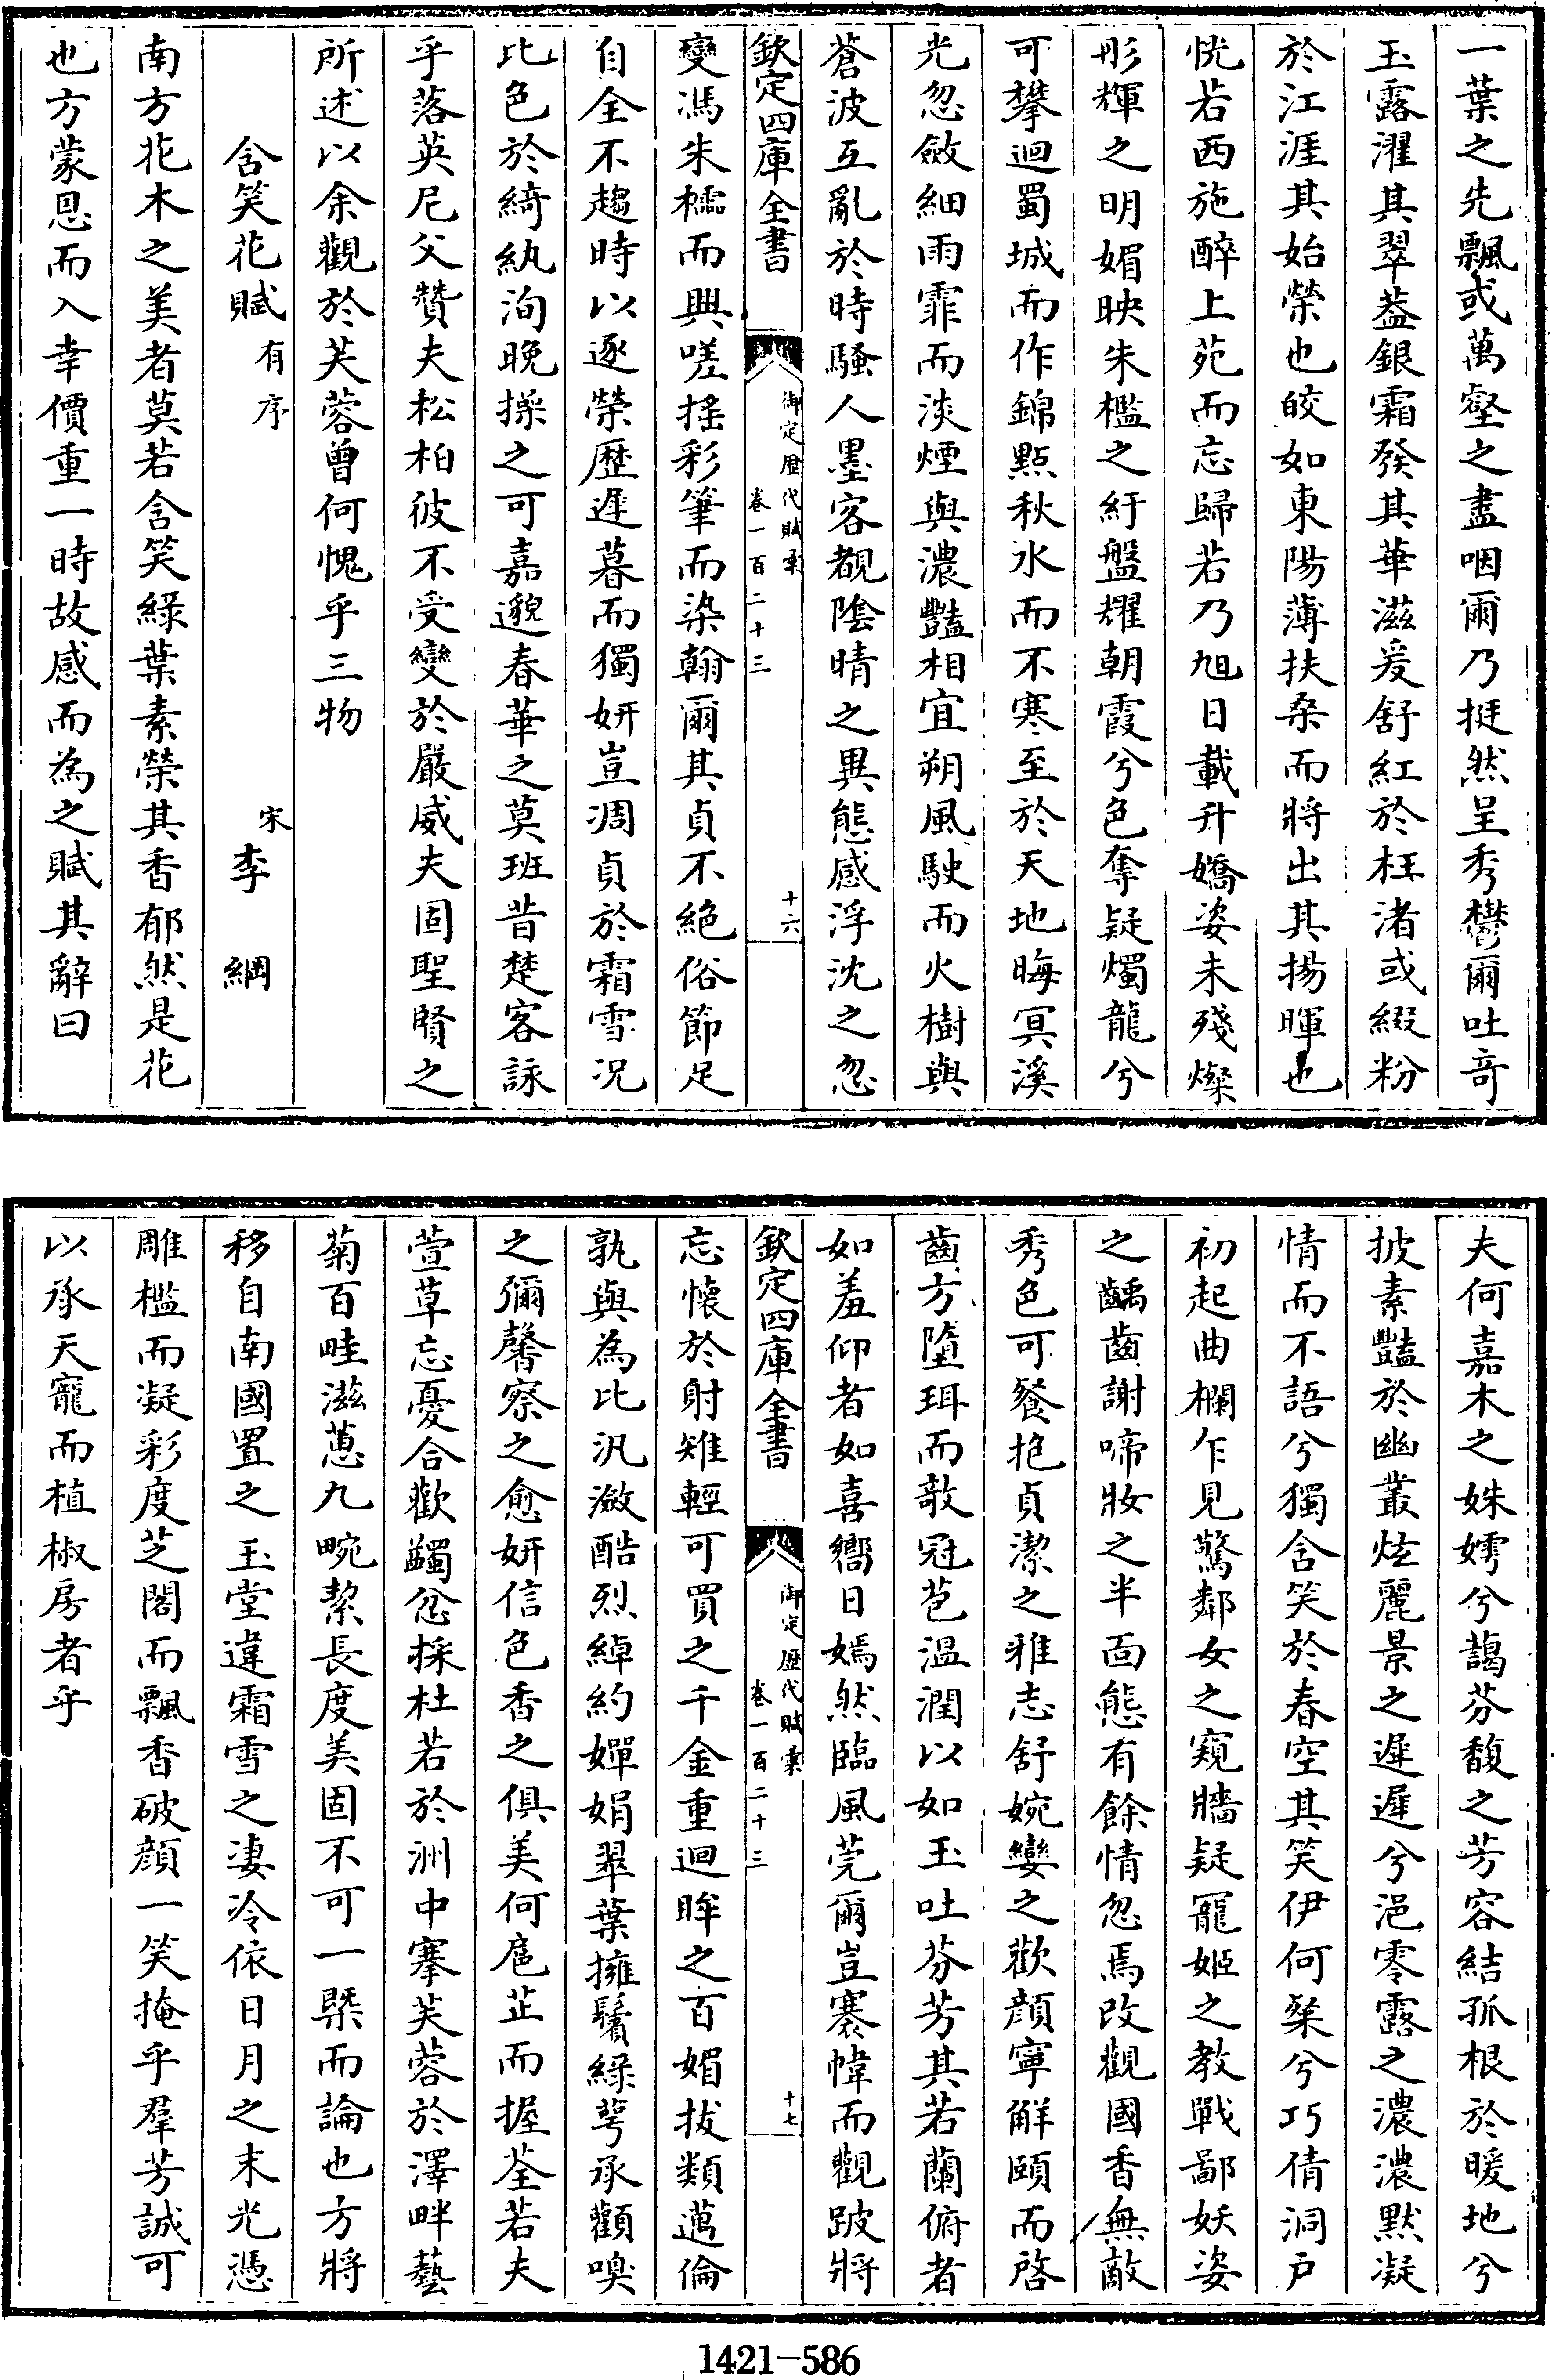 一葉之先飄或萬壑之盡咽爾乃挺然呈秀鬱爾吐奇
玉露濯其翠葢銀霜發其華滋爰舒紅於枉渚或綴粉
於江涯其始榮也皎如東陽薄扶桑而將出其揚暉也
恍若西施醉上苑而忘歸若乃旭日載升嬌姿未殘燦
彤輝之明媚映朱檻之紆盤耀朝霞兮色奪疑燭龍兮
可攀迴蜀城而作錦點秋水而不寒至於天地晦冥溪
光忽斂細雨霏而淡煙與濃豔相宜朔風駛而火樹與
蒼波互亂於時騷人墨客覩陰晴之異態感浮沈之忽
欽定四庫全書
御定歴代賦彚
卷一百二十三
十六
變馮朱檽而興嗟搖彩筆而染翰爾其貞不絕俗節足
自全不趨時以逐榮歴遲暮而獨妍豈凋貞於霜雪况
比色於綺紈洵晚操之可嘉邈春華之莫班昔楚客詠
乎落英尼父贊夫松柏彼不受變於嚴威夫固聖賢之
所述以余觀於芙蓉曾何愧乎三物
含笑花賦有序
宋李綱
南方花木之美者莫若含笑緑葉素榮其香郁然是花
也方蒙恩而入幸價重一時故感而為之賦其辭曰
夫何嘉木之姝嫮兮藹芬馥之芳容結孤根於暖地兮
披素豔於幽叢炫麗景之遲遲兮浥零露之濃濃默凝
情而不語兮獨含笑於春空其笑伊何粲兮巧倩洞户
初起曲欄乍見驚鄰女之窺牆疑寵姬之教戰鄙妖姿
之齲齒謝啼妝之半面態有餘情忽焉改觀國香無敵
秀色可餐抱貞潔之雅志舒婉孌之歡顔寧解頤而啓
齒方墮珥而欹冠苞温潤以如玉吐芬芳其若蘭俯者
如羞仰者如喜嚮日嫣然臨風莞爾豈褰幃而觀跛將
欽定四庫全書
御定歴代賦彚
卷一百二十三
十七
忘懷於射雉輕可買之千金重迴眸之百媚拔類邁倫
孰與為比汎瀲酷烈綽約嬋娟翠葉擁鬢緑萼承顴嗅
之彌馨察之愈妍信色香之俱美何扈芷而握荃若夫
萱草忘憂合歡蠲忿採杜若於洲中搴芙蓉於澤畔藝
菊百畦滋蕙九畹絜長度美固不可一槩而論也方將
移自南國置之玉堂違霜雪之凄冷依日月之末光憑
雕檻而凝彩度芝閣而飄香破顔一笑掩乎羣芳誠可
以承天寵而植椒房者乎
1421-586